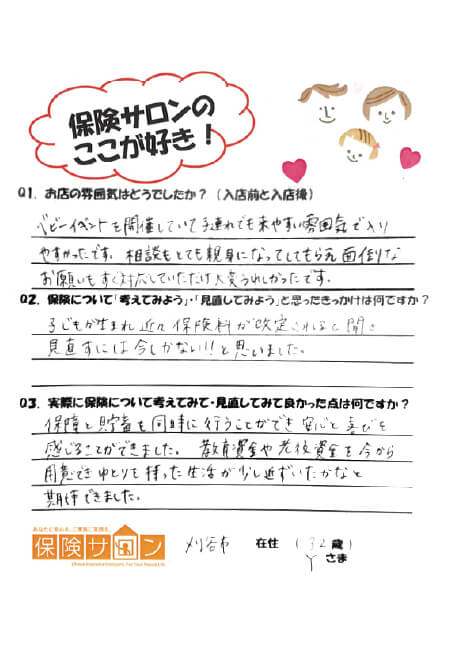 保険サロンの
ここが好き！
Q1. お店の雰囲気はどうでしたか？（入店前と入店後）
ベビーイベントを開催していて子連れでも来やすい雰囲気で入り
やすかったです。相談もとても親身になってしてもらえ面倒な
お願いもすぐ対応していただけ大変うれしかったです。
Q2. 保険について「考えてみよう」・「見直してみよう」と思ったきっかけは何ですか？
子どもが生まれ近々保険料が改定されると聞き
見直すには今しかない!!と思いました。
Q3. 実際に保険について考えてみて・見直してみて良かった点は何ですか？
保障と貯蓄を同時に行うことができ安心と喜びを
感じることができました。教育資金や老後資金を今から
用意でき ゆとりを持った生活が少し近ずいたかなと
期待できました。
保険サロン
刈谷市 在住 （32歳）
Y さま